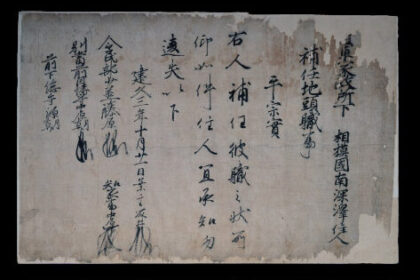 将軍家政所下 相模國南深澤住人
補任地頭職事
平宗實
右人補任彼職之状所
仰如件住人宜承知勿
違失以下
建久三年十月廿一日案主藤井
令民部少丞藤原 知家事中原
別當前因幡守中原朝臣
前下総守源朝臣